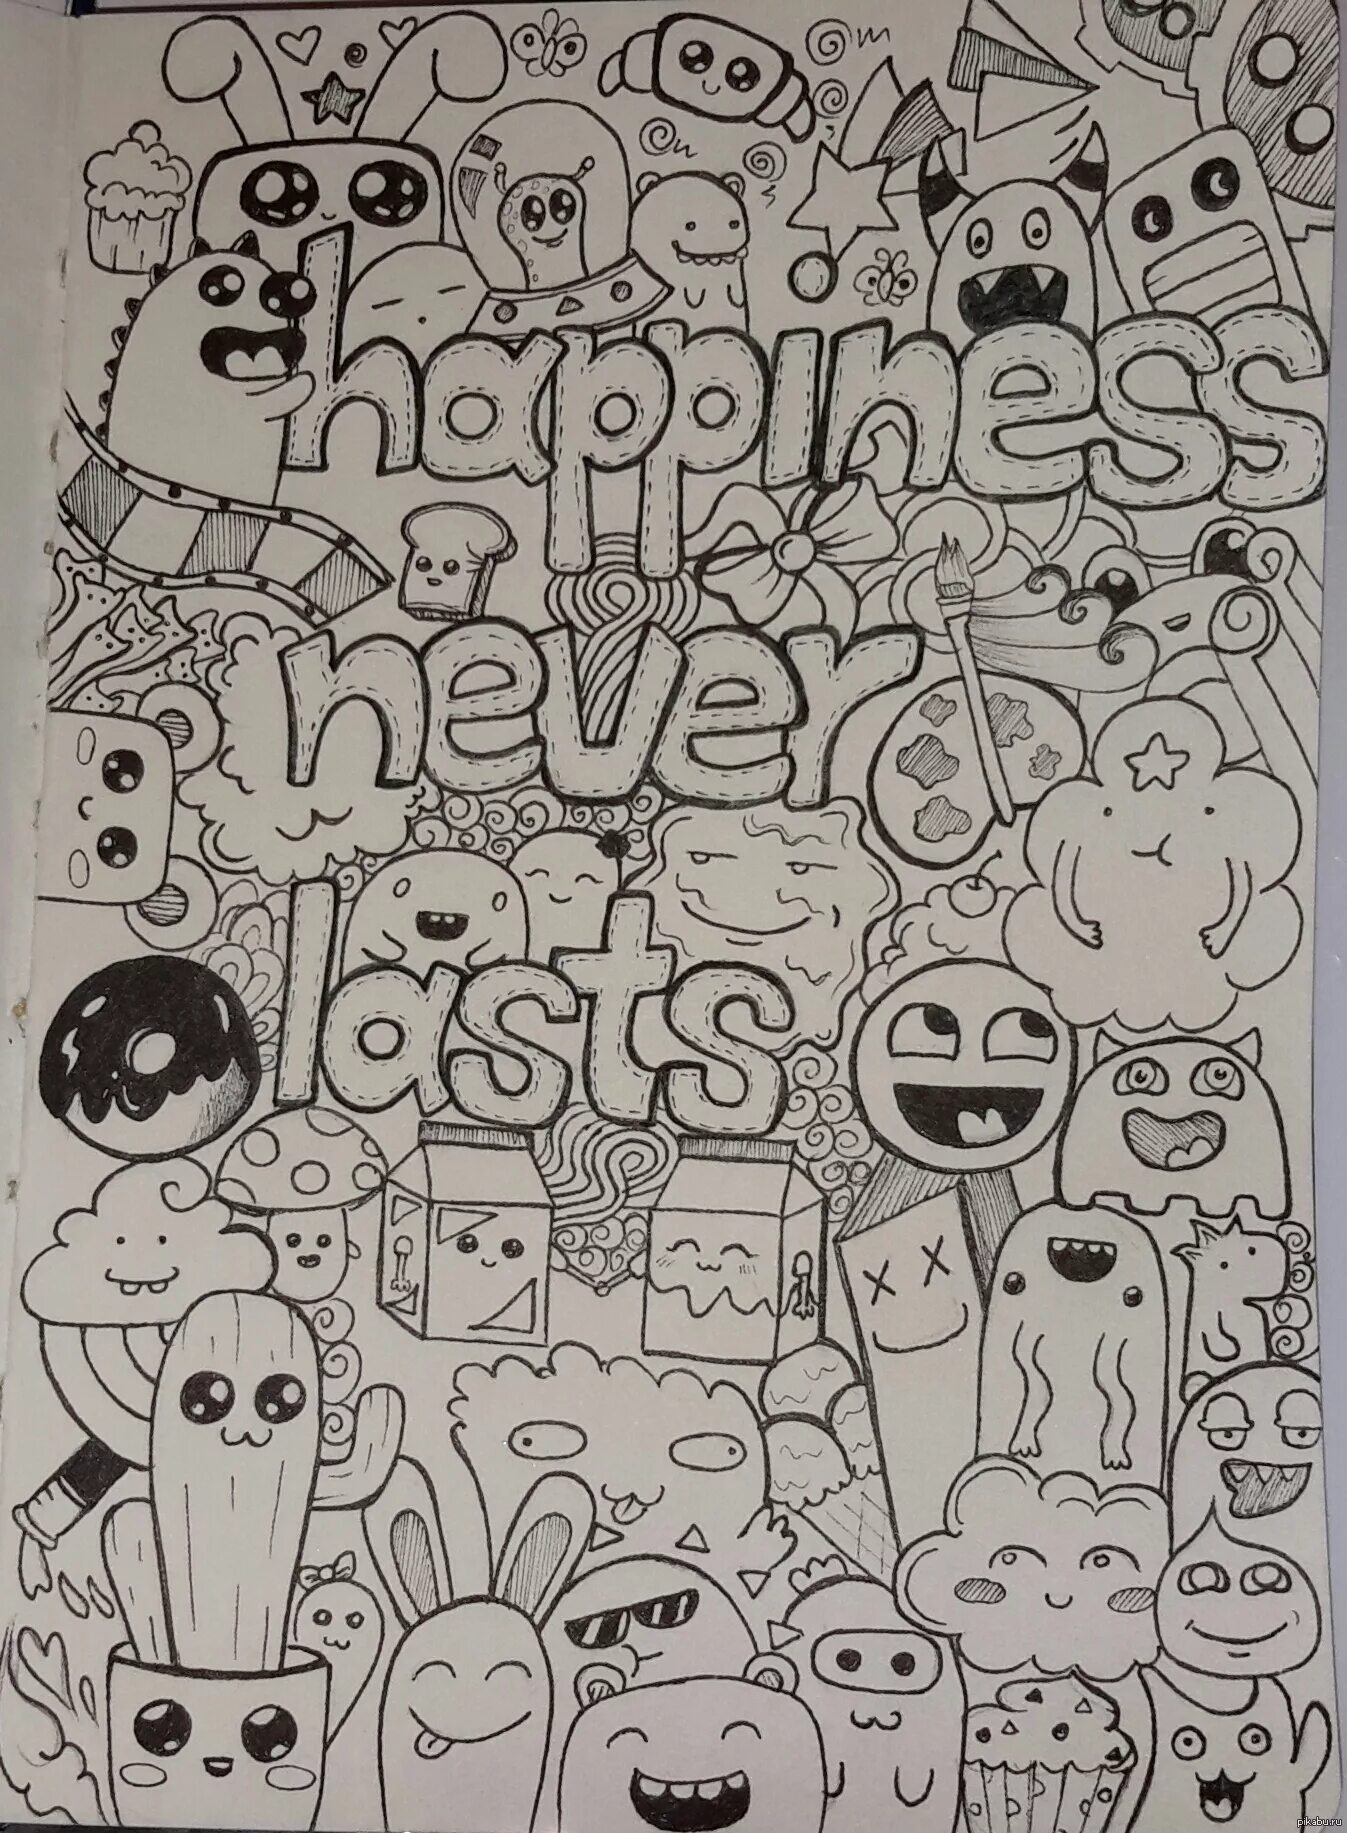 happiness
never
lasts
pikabu.ru